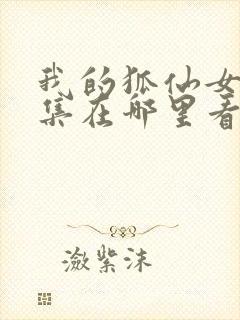 我的狐仙女
集在哪里看
潋紫沫